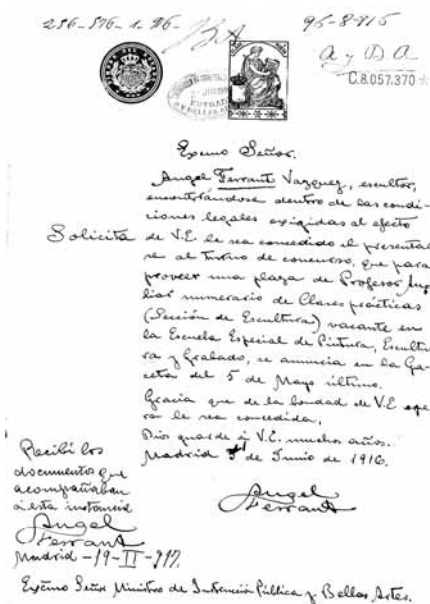 256-576-1-96-
96-8-915
A y B A
C.8.057.370
ENTRADA
Excmo Señor.
Angel Ferrant Vazquez, escultor,
encontrándose dentro de las condi-
ciones legales exigidas al efecto
Solicita de V.E. le sea concedido el presentar-
se al turno de concurso, que para
proveer una plaza de Profesor Aux-
iliar numerario de Clases prácticas
(Sección de Escultura) vacante en
la Escuela Especial de Pintura, Escultu-
ra y Grabado, se anuncia en la Ga-
ceta del 5 de Mayo último.
Gracia que de la bondad de V.E. espe-
ra le sea concedida.
Dios guarde á V.E. muchos años.
Madrid de Junio de 1916.
Angel
Ferrant
Recibí los
documentos que
acompañaban
á esta instancia
Angel
Ferrant
Madrid-19-II-917.
Excmo Señor Ministro de Instrucción Pública y Bellas Artes.